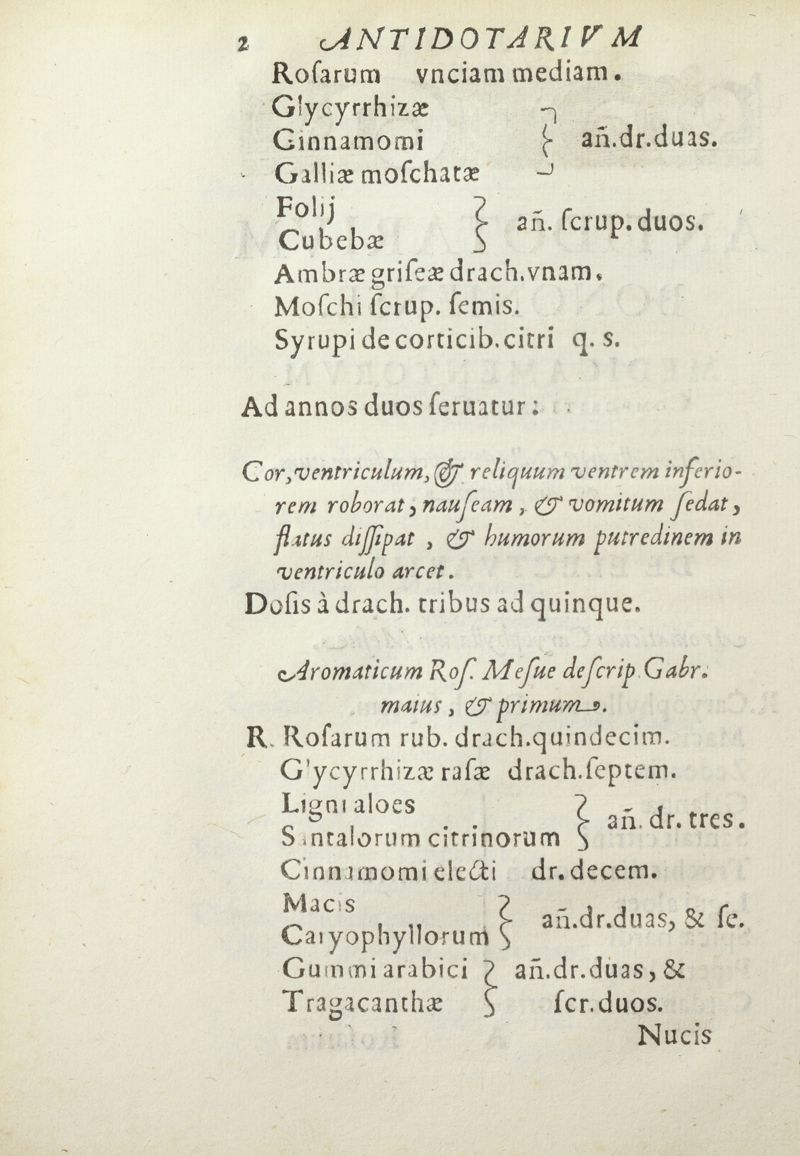 2 ANTIDOTARIVM
Roſarum vnciam mediam.
Glycyrrhizæ
Cinnamomi } añ.dr.duas.
Galliæ moſchatæ
Folij
Cubebæ } añ. ſcrup.duos.
Ambræ griſeæ drach.vnam.
Moſchi ſcrup. ſemis.
Syrupi de corticib.citri q. s.
Ad annos duos ſeruatur:
Cor,ventriculum,& reliquum ventrem inferio-
rem roborat, nauſeam, & vomitum ſedat,
flatus diſſipat, & humorum putredinem in
ventriculo arcet.
Doſis à drach. tribus ad quinque.
Aromaticum Roſ. Meſue deſcrip. Gabr.
maius, & primum.
R. Roſarum rub. drach.quindecim.
Glycyrrhizæ raſæ drach.ſeptem.
Ligni aloes
Santalorum citrinorum } añ. dr. tres.
Cinnamomi electi dr.decem.
Macis
Caryophyllorum } añ.dr.duas, & ſe.
Gummi arabici } añ.dr.duas, &
Tragacanthæ ſcr.duos.
Nucis